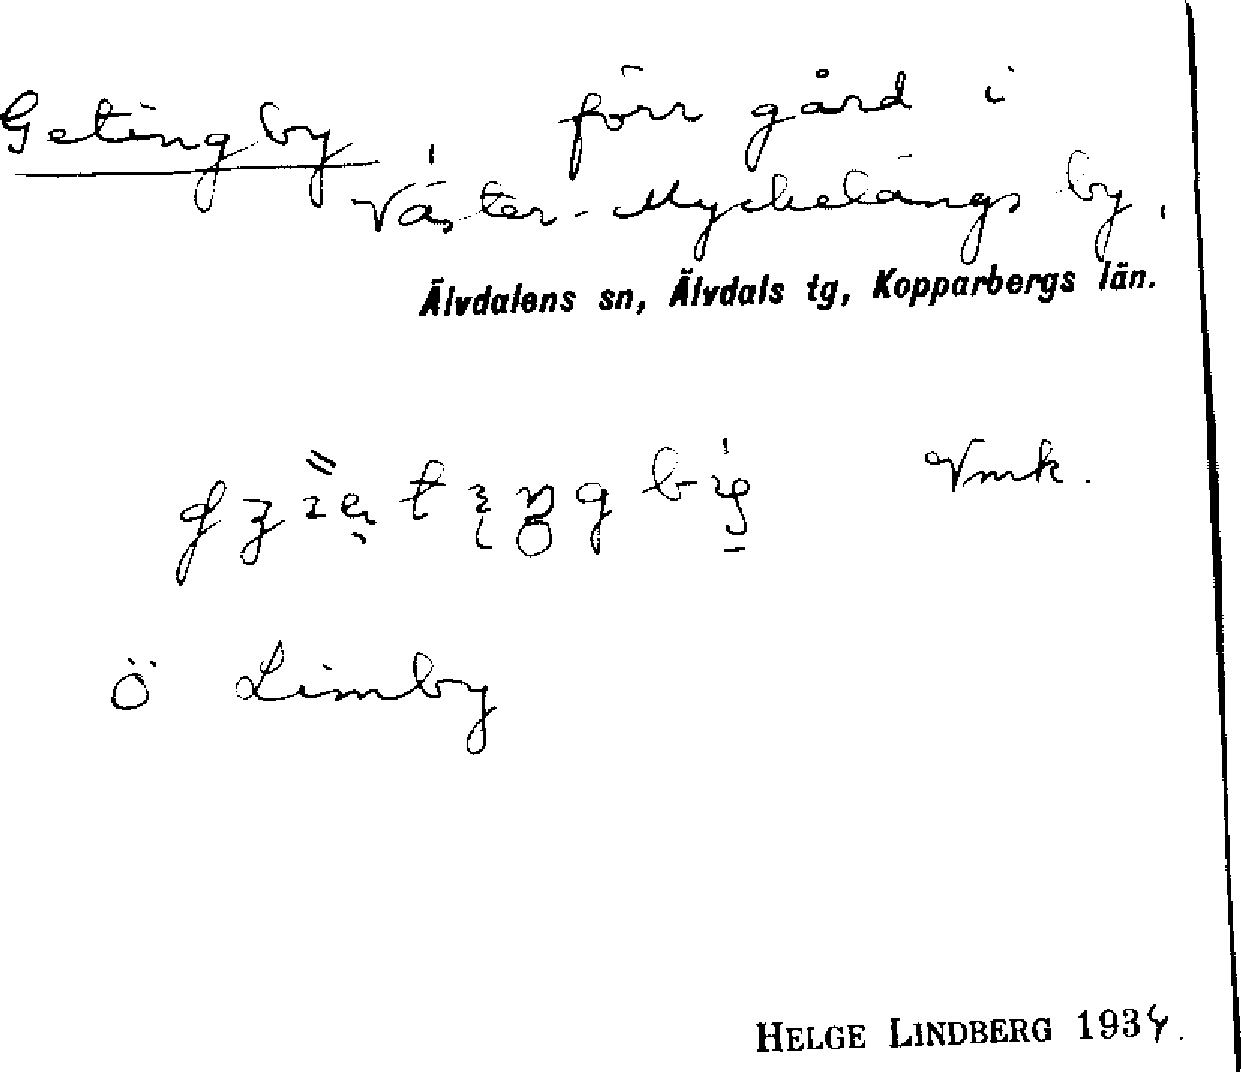 Getingby, förr gård i
Väster-Myckelängs by.
Älvdalens sn, Älvdals tg, Kopparbergs län.
Vmk.
Ö Limby
HELGE LINDBERG 1934.